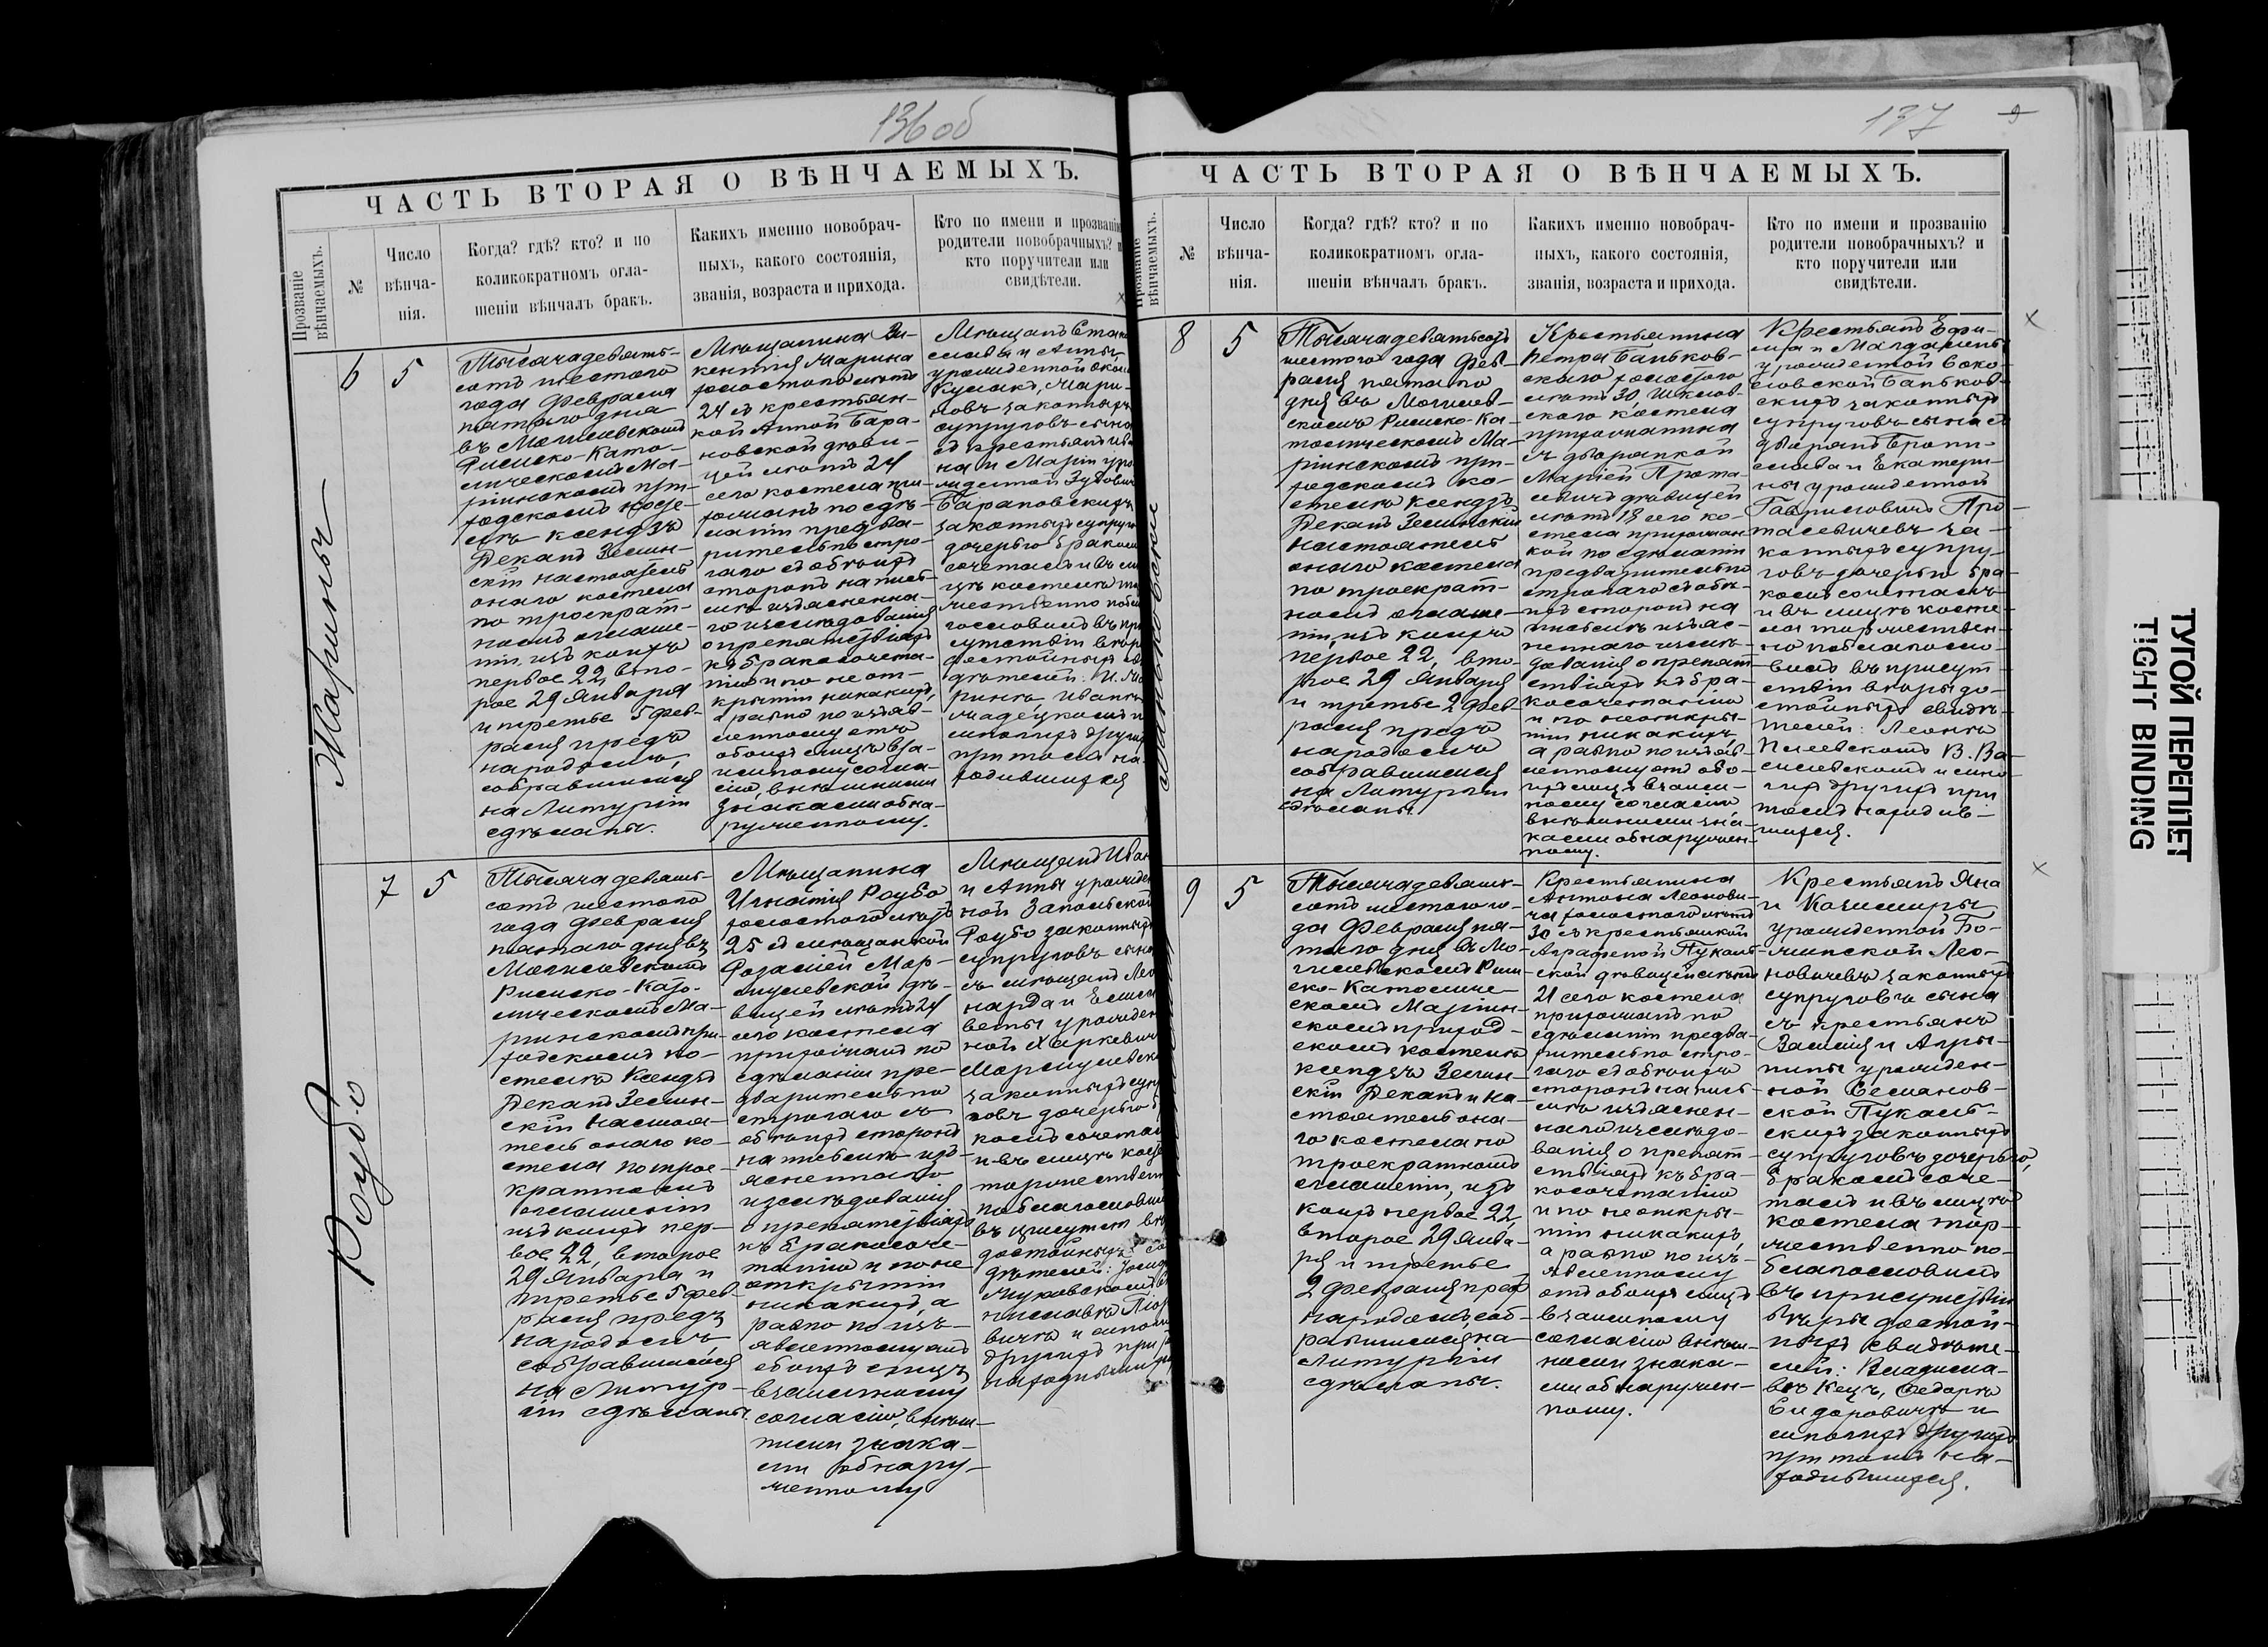 136 об
ЧАСТЬ ВТОРАЯ О ВѢНЧАЕМЫХЪ.
Прозваніе вѣнчаемыхъ.
№
Число вѣнча-
нія.
Когда? гдѣ? кто? и по
коликократномъ огла-
шеніи вѣнчалъ бракъ.
Какихъ именно новобрач-
ныхъ, какого состоянія,
званія, возраста и прихода.
Кто по имени и прозванію
родители новобрачныхъ? и
кто поручители или
свидѣтели.
Марины
6
5
Тысяча девять-
сотъ шестого
года Февраля
пятаго дня
въ Могилевскомъ
Римско-Като-
лическомъ Ма-
ріинскомъ при-
ходскомъ косте-
лѣ ксендзъ
Деканъ Землин-
скій настоятель
онаго костела
по троекрат-
номъ оглаше-
ніи, изъ коихъ
первое 22, вто-
рое 29 Января
и третье 5 Фев-
раля предъ
народомъ,
собравшимся
на Литургіи
сдѣланы.
Мѣщанина Ви-
кентія Марина
холостого лѣтъ
24 съ крестьян-
кой Анной Бара-
новской дѣви-
цей лѣтъ 24
сего костела при-
хожанъ по сдѣ-
ланіи предва-
рительно стро-
гаго съ обоихъ
сторонъ на пись-
мѣ изъясненна-
го изслѣдованія
о препятствіяхъ
къ бракосочета-
нію и по неот-
крытіи никакихъ,
а равно по изъяв-
ленному отъ
обоихъ лицъ вза-
имному согла-
сію, внѣшними
знаками обна-
руженному.
Мѣщанъ Стани
слава и Анны,
урожденной
Кулакъ, Мари-
новъ законныхъ
супруговъ сына
съ крестьянъ Ива
на и Маріи уро
жденной
Барановскихъ
законныхъ супруго
дочерью бракомъ
сочеталъ и въ ли
цѣ костела тор
жественно побла
гословилъ въ при
сутствіи вѣро
достойныхъ сви
дѣтелей: И. Ма
рина, Ивана
и
многихъ другихъ
при томъ на-
ходившихся
Роубо
7
5
Тысяча девять-
сотъ шестого
года Февраля
пятаго дня въ
Могилевскомъ
Римско-Като-
лическомъ Ма-
ріинскомъ при-
ходскомъ ко-
стелѣ Ксендзъ
Деканъ Землин-
скій настоя-
тель онаго ко-
стела по трое-
кратномъ
оглашеніи
изъ коихъ пер-
вое 22, второе
29 Января и
третье 5 Фев-
раля предъ
народомъ,
собравшимся
на Литур-
гіи сдѣланы.
Мѣщанина
Игнатія Роубо
холостого лѣтъ
25 съ мѣщанкой
Розаліей Мар-
цулевской дѣ-
вицей лѣтъ 24
сего костела
прихожанъ по
сдѣланіи пре-
дварительно
строгаго съ
обоихъ сторонъ
на письмѣ изъ-
ясненнаго
изслѣдованія
о препятствіяхъ
къ бракосоче-
танію и по не
открытіи
никакихъ, а
равно по изъ-
явленному отъ
обоихъ лицъ
взаимному
согласію, внѣш-
ними знака-
ми обнару-
женному
Мѣщанъ Иван
и Анны урожден
ной Запольской
Роубо законныхъ
супруговъ сына
съ мѣщанъ Лео
нарда и Елиза
веты урожден
ной Харкевичъ
Марцулевск
законныхъ супру
говъ дочерью б
комъ сочеталъ
и въ лицѣ кост
торжественн
поблагословилъ
въ присутст вѣ
достойныхъ св
дѣтелей:
и многи
другихъ при
находившихся
137
ЧАСТЬ ВТОРАЯ О ВѢНЧАЕМЫХЪ.
Прозваніе вѣнчаемыхъ.
№
Число
вѣнча-
нія.
Когда? гдѣ? кто? и по
коликократномъ огла-
шеніи вѣнчалъ бракъ.
Какихъ именно новобрач-
ныхъ, какого состоянія,
званія, возраста и прихода.
Кто по имени и прозванію
родители новобрачныхъ? и
кто поручители или
свидѣтели.
8
5
Тысяча девятьсотъ
шестого года Фев-
раля пятаго
дня въ Могилев-
скомъ Римско-Ка-
толическомъ Ма-
ріинскомъ при-
ходскомъ ко-
стелѣ Ксендзъ
Деканъ Землинскій
настоятель
онаго костела
по троекрат-
номъ оглаше-
ніи, изъ коихъ
первое 22, вто-
рое 29 Января
и третье 2 Фев-
раля предъ
народомъ
собравшимся
на Литургіи
сдѣланы.
Крестьянина
Петра Баньков-
скаго холостого
лѣтъ 30, Шклов-
скаго костела
прихожанина
съ дворянкой
Маріей Прота-
севичъ дѣвицей
лѣтъ 18 сего ко-
стела прихожан-
кой по сдѣланіи
предварительно
строгаго съ обо-
ихъ сторонъ на
письмѣ изъяс-
неннаго изслѣ-
дованія о препят-
ствіяхъ къ бра-
косочетанію
и по неоткры-
тіи никакихъ,
а равно по изъяв-
ленному отъ обо-
ихъ лицъ взаим-
ному согласію
внѣшними зна-
ками обнаружен-
ному.
Крестьянъ Ефи-
ма и Магдалены
урожденной Соко-
ловской Баньков-
скихъ законныхъ
супруговъ сына съ
дворянъ Брони-
слава и Екатери-
ны урожденной
Гавриловичъ Про-
тасевичевъ за-
конныхъ супру-
говъ дочерью бра-
комъ сочеталъ
и въ лицѣ косте-
ла торжествен-
но поблагосло-
вилъ въ присут-
ствіи вѣродо-
стойныхъ свидѣ-
телей: Леона
В. Ва-
силевскаго и мно-
гихъ другихъ при
томъ находив-
шихся.
9
5
Тысяча девять-
сотъ шестого го-
да Февраля пя-
таго дня въ Мо-
гилевскомъ Рим-
ско-Католиче-
скомъ Маріин-
скомъ приход-
скомъ костелѣ
ксендзъ Землин-
скій Деканъ и на-
стоятель она-
го костела по
троекратномъ
оглашеніи, изъ
коихъ первое 22,
второе 29 Янва-
ря и третье
2 Февраля предъ
народомъ соб-
равшимся на
Литургіи
сдѣланы.
Крестьянина
Антона Леонови-
ча холостого лѣтъ
30 съ крестьянкой
Аграфеной Пукаль-
ской дѣвицей лѣтъ
21 сего костела
прихожанъ по
сдѣланіи предва-
рительно стро-
гаго съ обоихъ
сторонъ на пись-
мѣ изъяснен-
наго изслѣдо-
ванія о препят-
ствіяхъ къ бра-
косочетанію
и по неоткры-
тіи никакихъ,
а равно по изъ-
явленному
отъ обоихъ лицъ
взаимному
согласію внѣш-
ними знака-
ми обнаружен-
ному.
Крестьянъ Яна
и Казимиры
урожденной Бо-
чинской Лео-
новичевъ законныхъ
супруговъ сына
съ крестьянъ
Василія и Агри-
пины урожден-
ной Семанов-
ской Пукаль-
скихъ законныхъ
супруговъ дочерью,
бракомъ соче-
талъ и въ лицѣ
костела тор-
жественно по-
благословилъ
въ присутствіи
вѣры достой-
ныхъ свидѣте-
лей: Владисла-
ва Кецъ, Федора
Сидоровича и
многихъ другихъ
при томъ на-
ходившихся.
ТУГОЙ ПЕРЕПЛЕТ
TIGHT BINDING